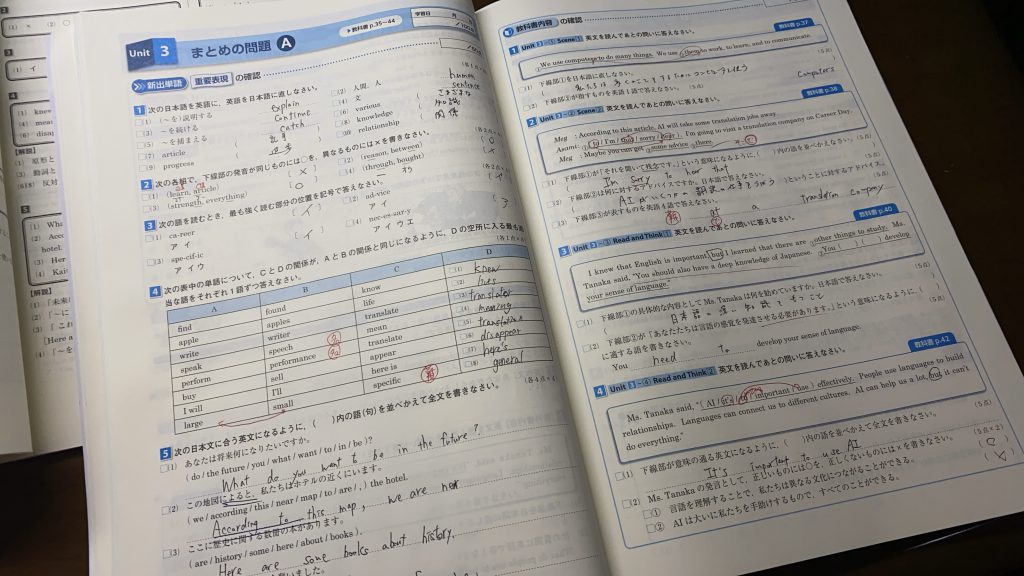 教科書 p.35~44
学習日 月
Unit 3 まとめの問題 A
新出単語 重要表現 の確認
1 次の日本語を英語に、英語を日本語に直しなさい。
(1) (~を)説明する explain
(2) 人間、人 human
(3) ~を続ける continue
(4) 文 sentence
(5) ~を捕まえる catch
(6) various さまざまな
(7) article 記事
(8) knowledge 知識
(9) progress 進歩
(10) relationship 関係
2 次の各組で、下線部の発音が同じものには○を、異なるものには×を書きなさい。
(1) (learn, article) ×
(2) (reason, between) ○
(3) (strength, everything) ○
(4) (through, bought) ×
3 次の語を読むとき、最も強く読む部分の位置を記号で答えなさい。
(1) ca-reer イ
ア イ
(2) ad-vice イ
ア イ
(3) spe-cif-ic イ
ア イ ウ
(4) nec-es-sar-y ア
ア イ ウ エ
4 次の表中の単語について、CとDの関係が、AとBの関係と同じになるように、Dの空所に入る最も適
当な語をそれぞれ1語ずつ答えなさい。
A B C D
find found know (1) knew
apple apples life (2) lives
write writer translate (3) translator
speak speech mean (4) meaning
perform performance translate (5) translation
buy sell appear (6) disappear
I will I'll here is (7) here's
large small specific (8) general
5 次の日本文に合う英文になるように、( )内の語(句)を並べかえて全文を書きなさい。
(1) あなたは将来何になりたいですか。
( do / the future / you / what / want / to / in / be )?
What do you want to be in the future?
(2) この地図によると、私たちはホテルの近くにいます。
( we / according / this / near / map / to / are / , ) the hotel.
According to this map, we are near
(3) ここに歴史に関する数冊の本があります。
( are / history / some / here / about / books ).
Here are some books about history.
教科書内容 の確認
教科書 p.37
1 Unit 3-① Scene 1 英文を読んであとの問いに答えなさい。
We use computers to do many things. We use them to work, to learn, and to communicate.
(1) 下線部①を日本語に直しなさい。 (5点)
(2) 下線部②が指すものを英語1語で答えなさい。 (5点)
Computers
教科書 p.38
2 Unit 3-② Scene 2 英文を読んであとの問いに答えなさい。
Meg : According to this article, AI will take some translation jobs away.
Asami : ( to / I'm / that / sorry / hear ). I'm going to visit a translation company on Career Day.
Meg : Maybe you can get some advice there.
(1) 下線部①が「それを聞いて残念です。」という意味になるように、( )内の語を並べかえなさい。
I'm sorry to hear that
(2) 下線部②は何に対するアドバイスですか。日本語で答えなさい。
ということに対するアドバイス
(3) 下線部③が表すものを英語4語で書きなさい。
at a translation company
教科書 p.40
3 Unit 3-③ Read and Think 1 英文を読んであとの問いに答えなさい。
I knew that English is important, but I learned that there are other things to study. Ms.
Tanaka said, "You should also have a deep knowledge of Japanese. You ( ) ( ) develop
your sense of language."
(1) 下線部①の具体的な内容として Ms. Tanaka は何を勧めていますか。日本語で答えなさい。
日本語の深い知識をもつこと
(2) 下線部②が「あなたたちは言語の感覚を発達させる必要があります。」という意味になるように、( )
に適する語を書きなさい。 (5点)
You need to develop your sense of language.
教科書 p.42
4 Unit 3-④ Read and Think 2 英文を読んであとの問いに答えなさい。
Ms. Tanaka said, "( AI / it's / to / important / use ) effectively. People use languages to build
relationships. Languages can connect us to different cultures. AI can help us a lot, but it can't
do everything."
(1) 下線部が意味の通る英文になるように、( )内の語を並べかえて全文を書きなさい。 (5点)
It's important to use AI
(2) Ms. Tanaka の発言として、正しいものには○を、正しくないものには×を書きなさい。 (5点×2)
① 言語を理解することで、私たちは異なる文化につながることができる。
② AIは大いに私たちを手助けするもので、すべてのことができる。